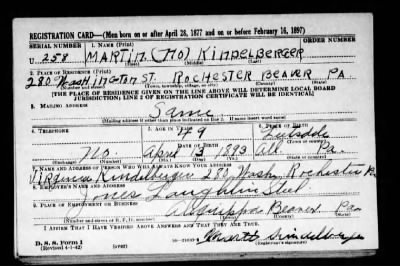 REGISTRATION CARD—(Men born on or after April 28, 1877 and on or before February 16, 1897)
SERIAL NUMBER 1. NAME (Print)
U 258 MARTIN (NO) KINDELBERGER
(First) (Middle) (Last)
2. PLACE OF RESIDENCE (Print)
280 Washington ST. ROCHESTER BEAVER PA.
(Number and street) (Town, township, village, or city) (County) (State)
[THE PLACE OF RESIDENCE GIVEN ON THE LINE ABOVE WILL DETERMINE LOCAL BOARD
JURISDICTION; LINE 2 OF REGISTRATION CERTIFICATE WILL BE IDENTICAL]
3. MAILING ADDRESS
Same
[Mailing address if other than place indicated on line 2. If same insert word same]
4. TELEPHONE 5. AGE IN YEARS 6. PLACE OF BIRTH
49 Leetsdale
DATE OF BIRTH (Town or county)
No. April 13 1893 All. Pa.
(Exchange) (Number) (Mo.) (Day) (Yr.) (State or country)
7. NAME AND ADDRESS OF PERSON WHO WILL ALWAYS KNOW YOUR ADDRESS
Virginia Kindelberger 280 Wash. Rochester Pa
8. EMPLOYER'S NAME AND ADDRESS
Jones Laughlin Steel
9. PLACE OF EMPLOYMENT OR BUSINESS
Aliquippa Beaver Pa
(Number and street or R. F. D. number) (Town) (County) (State)
I AFFIRM THAT I HAVE VERIFIED ABOVE ANSWERS AND THAT THEY ARE TRUE.
D. S. S. Form 1
(Revised 4-1-42) (over) Kindelberger
(Registrant's signature)